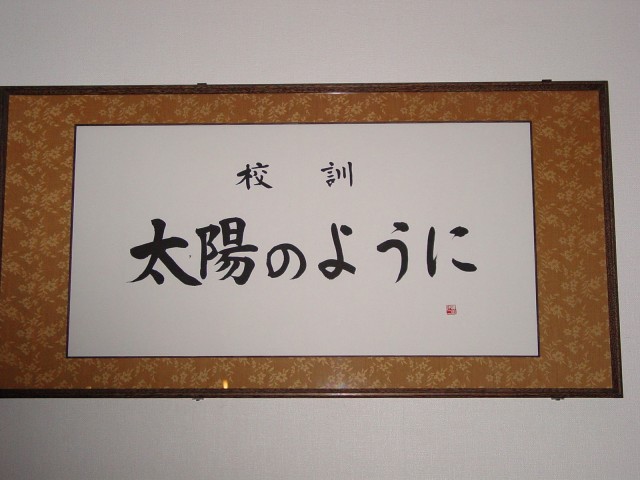 校訓
太陽のように